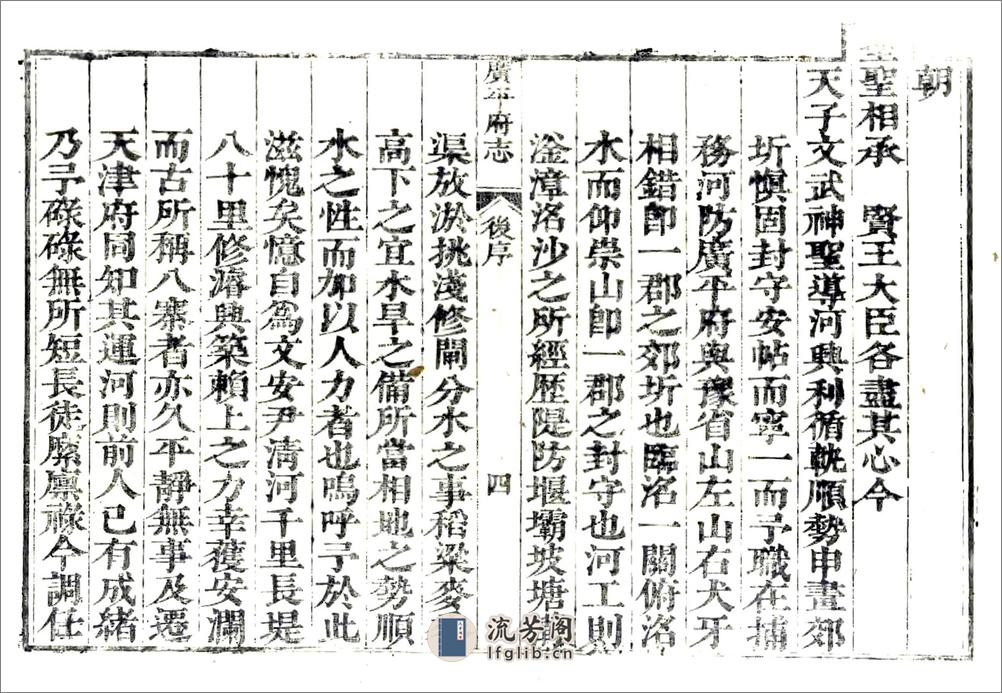 朝
聖聖相承　賢王大臣各盡其心今
天子文武神聖導河興利循軌順勢申畫郊
圻慎固封守安帖而寧一而予職在捕
務河防廣平府與豫省山左山右犬牙
相錯卽一郡之郊圻也臨洺一關俯洺
水而仰崇山卽一郡之封守也河工則
滏漳洺沙之所經歷隄防堰壩坡塘
廣平府志
後序
四
渠放淤挑淺修閘分水之事稻粱麥
高下之宜水旱之備所當相地之勢順
水之性而加以人力者也嗚呼予於此
滋愧矣憶自爲文安尹清河千里長堤
八十里修濬興築賴上之力幸獲安瀾
而古所稱八寨者亦久平靜無事及遷
天津府同知其運河則前人已有成緒
乃予碌碌無所短長徒縻廩祿今調任
流芳阁
lfglib.cn